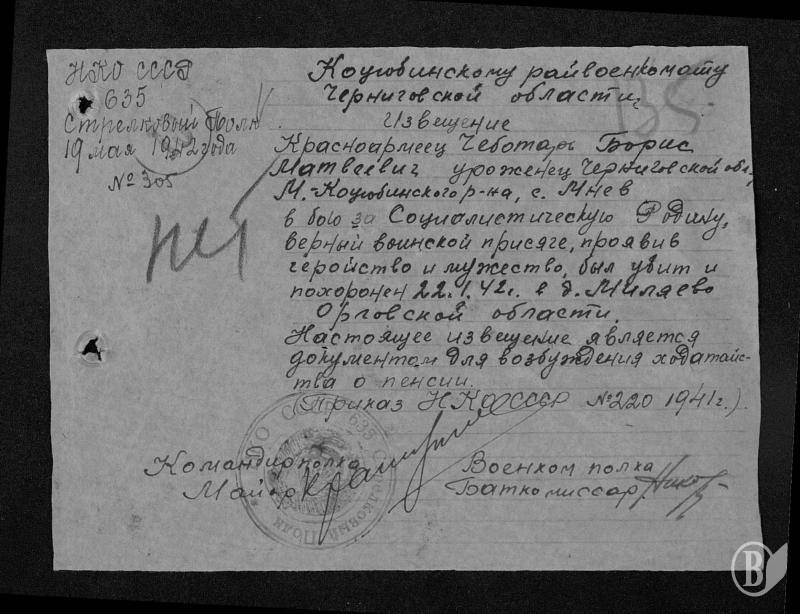 НКО СССР
635
Стрелковый Полк
19 мая 1942 года
№ 305
Коцюбинскому райвоенкомату
Черниговской области,
Извещение
Красноармеец Чеботарь Борис
Матвеевич уроженец Черниговской обл,
М.-Коцюбинского р-на, с. Мнев
в бою за Социалистическую Родину,
верный воинской присяге, проявив
геройство и мужество, был убит и
похоронен 22.1.42г. в д. Миляево
Орловской области.
Настоящее извещение является
документом для возбуждения ходатайс-
тва о пенсии.
(Приказ НКО СССР №220 1941г.).
нет
Командир полка
Майор
Военком полка
Бат.комиссар
НКО СССР 635 Стрелковый Полк
В